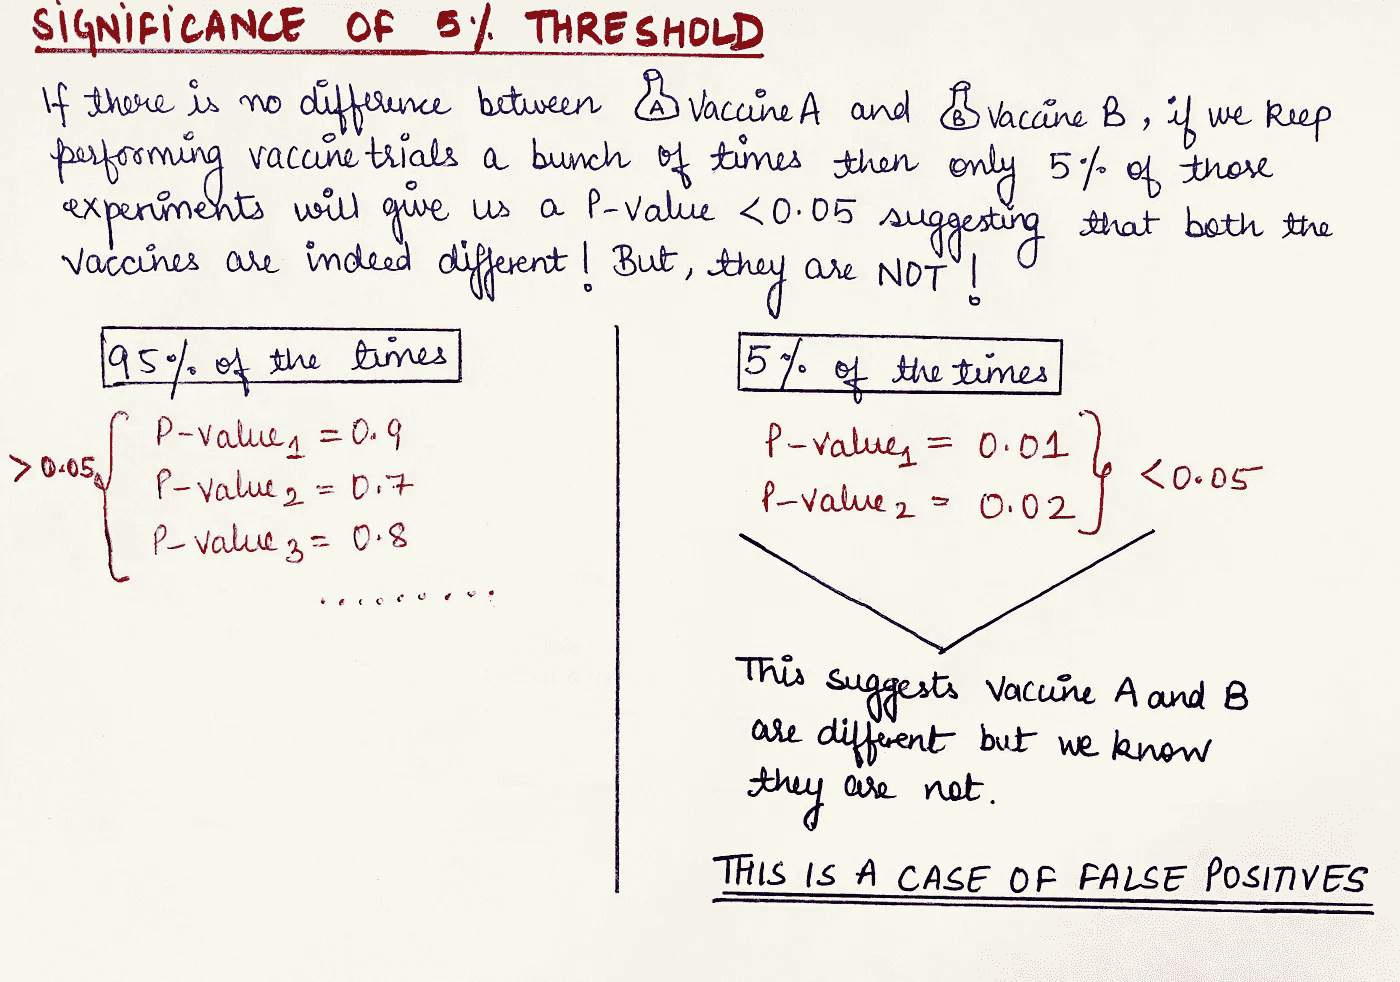 SIGNIFICANCE OF 5% THRESHOLD
If there is no difference between A Vaccine A and B Vaccine B, if we keep
performing vaccine trials a bunch of times then only 5% of those
experiments will give us a P-value <0.05 suggesting that both the
vaccines are indeed different! But, they are NOT!
95% of the times
>0.05
P-value1 = 0.9
P-value2 = 0.7
P-value3 = 0.8
.........
5% of the times
P-value1 = 0.01
P-value2 = 0.02
<0.05
This suggests Vaccine A and B
are different but we know
they are not.
THIS IS A CASE OF FALSE POSITIVES